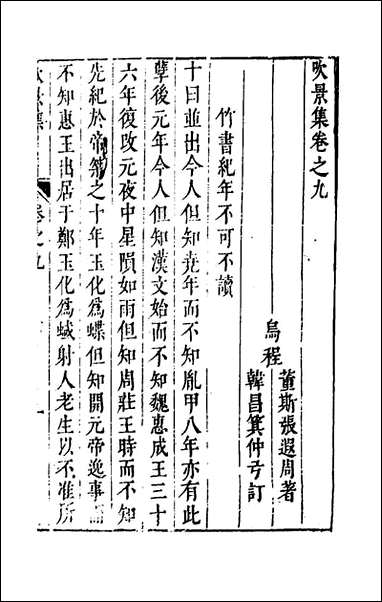 吹景集卷之九
烏程
董斯張遐周著
韓昌箕仲弓訂
竹書紀年不可不讀
十日並出今人但知堯年而不知胤甲八年亦有此
孽後元年今人但知漢文始而不知魏惠成王三十
六年復改元夜中星隕如雨但知周莊王時而不知
先紀於帝癸之十年玉化爲蝶但知開元帝逸事而
不知惠王出居于鄭玉化爲蜮射人老生以不准所
卷之九